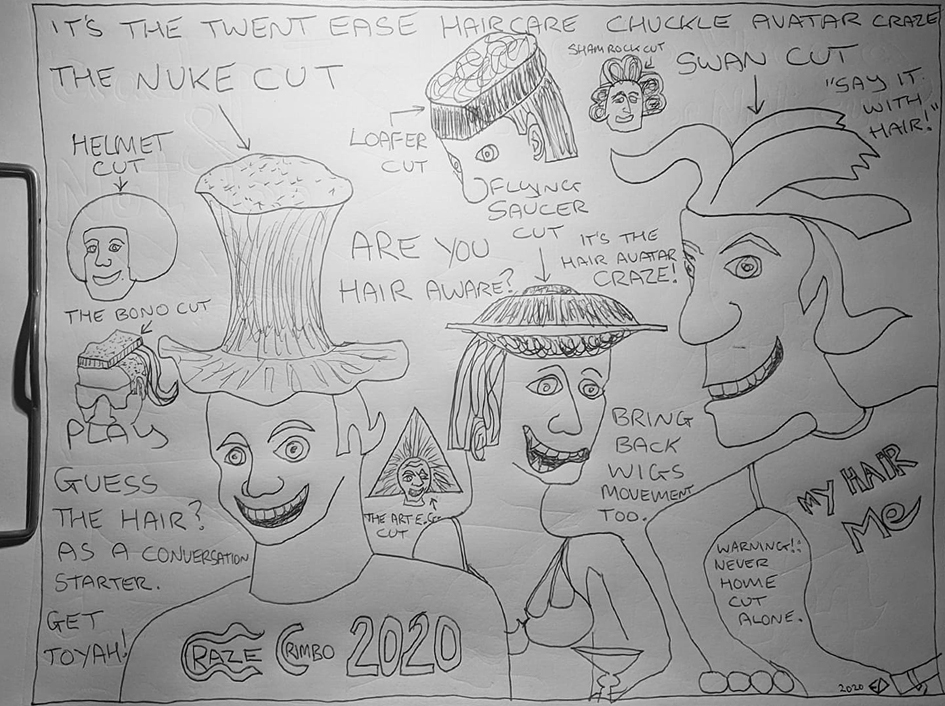 IT'S THE TWENT EASE HAIRCARE CHUCKLE AVATAR CRAZE
THE NUKE CUT
SHAMROCK CUT
SWAN CUT
"SAY IT
WITH
HAIR!"
HELMET
CUT
LOAFER
CUT
FLYING
SAUCER
CUT
ARE YOU
HAIR AWARE?
IT'S THE
HAIR AVATAR
CRAZE!
THE BONO CUT
PLAY
GUESS
THE HAIR?
AS A CONVERSATION
STARTER.
GET
TOYAH!
THE ART E.
CUT
BRING
BACK
WIGS
MOVEMENT
TOO.
MY HAIR
ME
WARNING!!
NEVER
HOME
CUT
ALONE.
CRAZE CRIMBO 2020
2020 ED